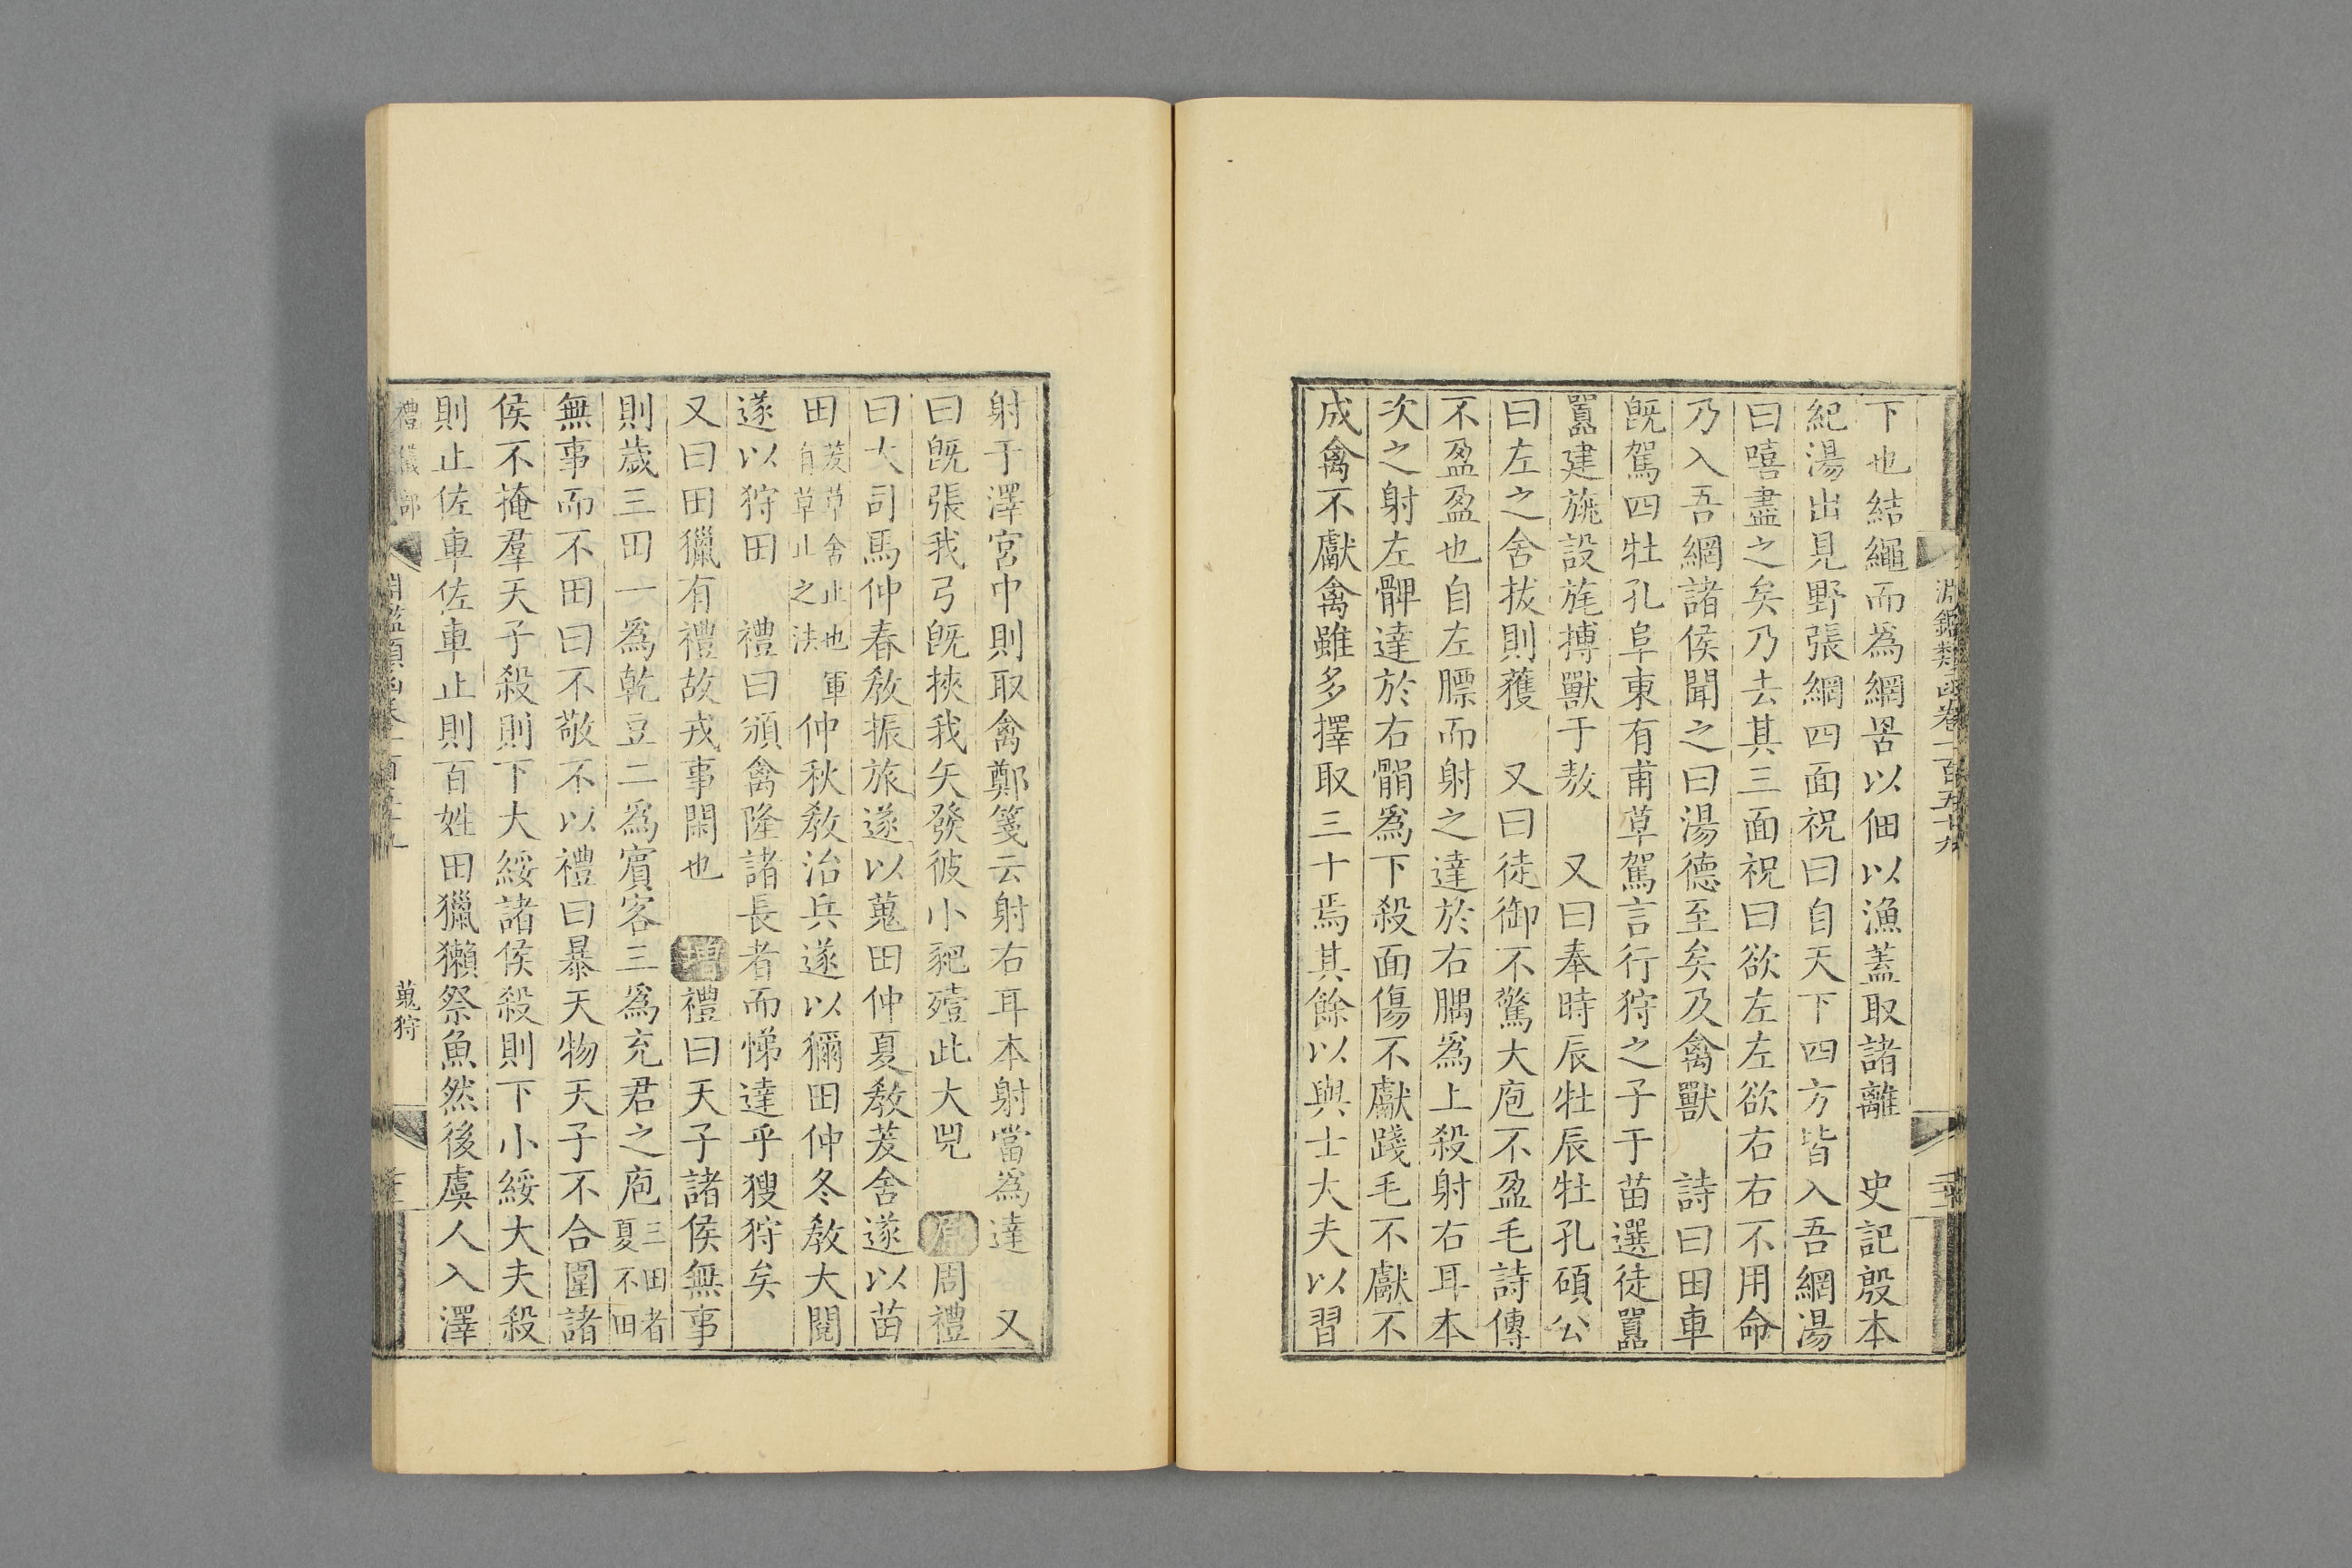 淵鑑類函卷一百五十九
下也結繩而爲網罟以佃以漁蓋取諸離　史記殷本
紀湯出見野張網四面祝曰自天下四方皆入吾網湯
曰嘻盡之矣乃去其三面祝曰欲左左欲右右不用命
乃入吾網諸侯聞之曰湯德至矣及禽獸　詩曰田車
旣駕四牡孔阜東有甫草駕言行狩之子于苗選徒囂
囂建旐設旄搏獸于敖　又曰奉時辰牡辰牡孔碩公
曰左之舍拔則獲　又曰徒御不驚大庖不盈毛詩傳
不盈盈也自左膘而射之達於右腢爲上殺射右耳本
次之射左髀達於右䯚爲下殺面傷不獻踐毛不獻不
成禽不獻禽雖多擇取三十焉其餘以與士大夫以習
射于澤宮中則取禽鄭箋云射右耳本射當爲達　又
曰旣張我弓旣挾我矢發彼小豝殪此大兕　原周禮
曰大司馬仲春敎振旅遂以蒐田仲夏敎茇舍遂以苗
田茇草舍止也軍有草止之法　仲秋敎治兵遂以獮田仲冬敎大閱
遂以狩田　禮曰頒禽隆諸長者而悌達乎獀狩矣
又曰田獵有禮故戎事閑也　增禮曰天子諸侯無事
則歲三田一爲乾豆二爲賓客三爲充君之庖三田者夏不田
無事而不田曰不敬不以禮曰暴天物天子不合圍諸
侯不掩羣天子殺則下大綏諸侯殺則下小綏大夫殺
則止佐車佐車止則百姓田獵獺祭魚然後虞人入澤
禮儀部
蒐狩